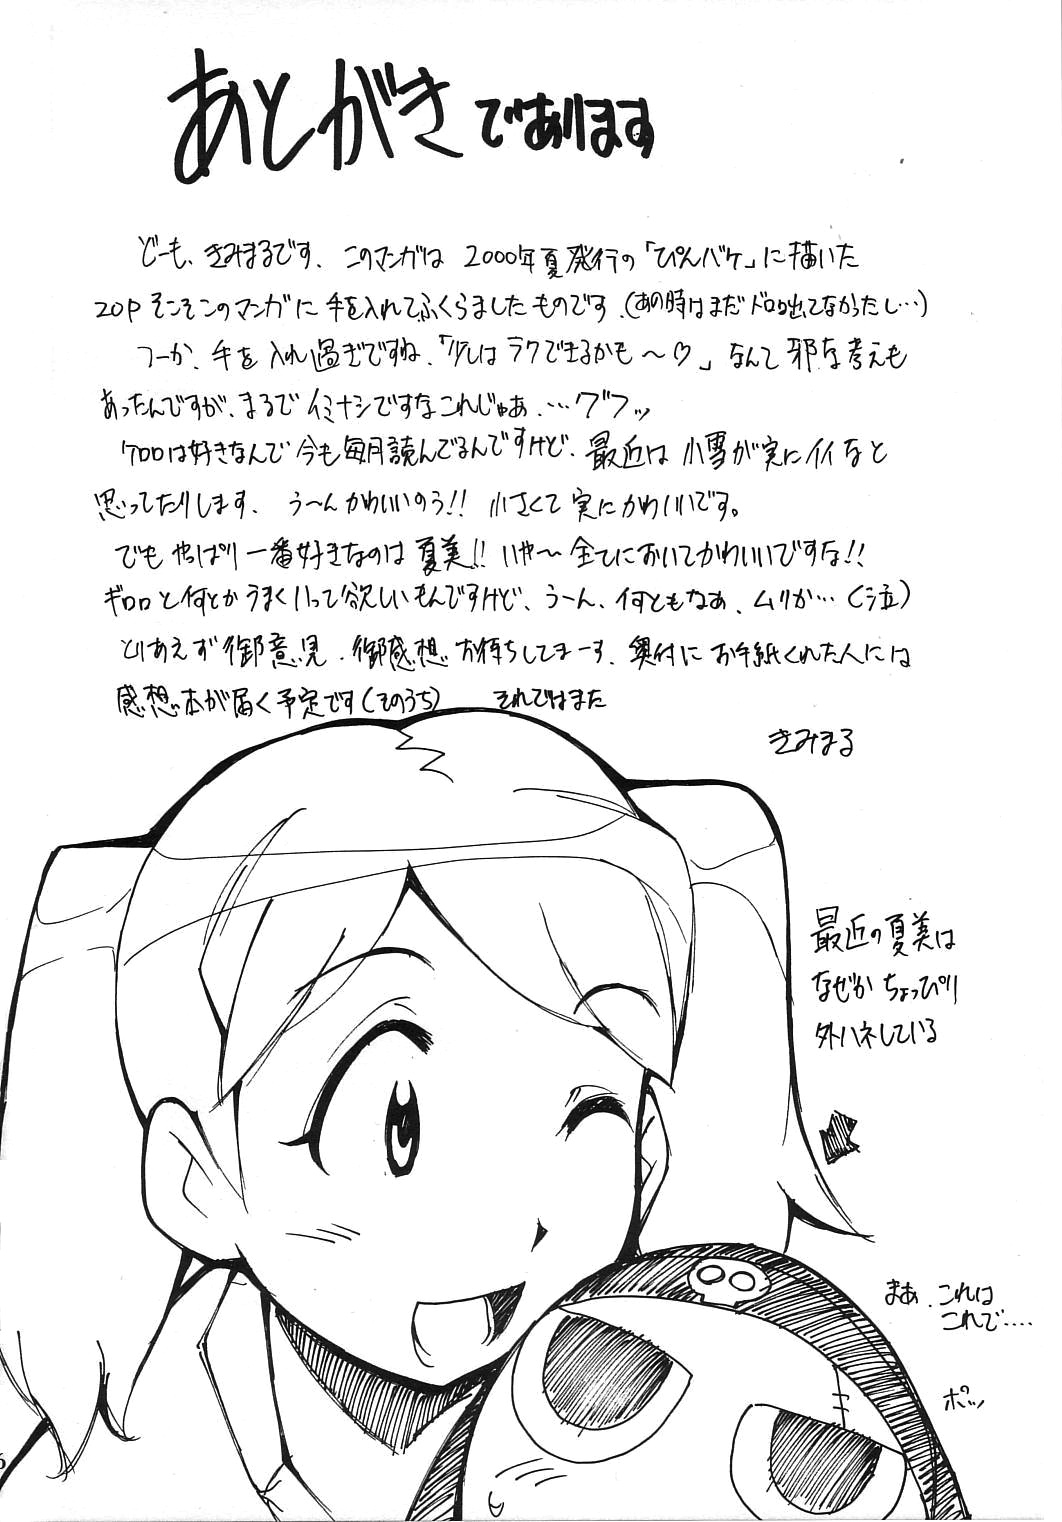 あとがきであります
どーも、きみまるです、このマンガは2000年夏発行の「ぴんバケ」に描いた
20Pそこそこのマンガに手を入れてふくらましたものです、(あの時はまだドロロ出てなかったし…)
つーか、手を入れ過ぎですね、「少しはラクできるかも〜♡」なんて邪な考えも
あったんですが、まるでイミナシですなこれじゃあ、…グフッ
ケロロは好きなんで今も毎月読んでるんですけど、最近は小雪が実にイイなと
思ってたりします、う〜んかわいいのう!!小さくて実にかわいいです。
でもやっぱり一番好きなのは夏美!!いや〜全てにおいてかわいいですな!!
ギロロと何とかうまくいって欲しいもんですけど、う〜ん、何ともなあ、ムリか…(泣)
とりあえず御意見、御感想お待ちしてまーす、奥付にお手紙くれた人には
感想本が届く予定です(そのうち) それではまた
きみまる
最近の夏美は
なぜかちょっぴり
外ハネしている
まぁ、これは
これで....
ポッ
6